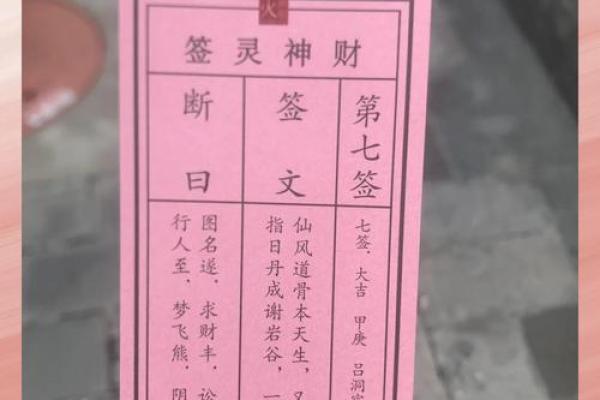 火
财神灵签
第七签
七签．大吉 甲庚 吕洞
签文
仙风道骨本天生，又
指日丹成谢岩谷，一
断曰
图名遂．求财丰．讼
行人至．梦飞熊．阴